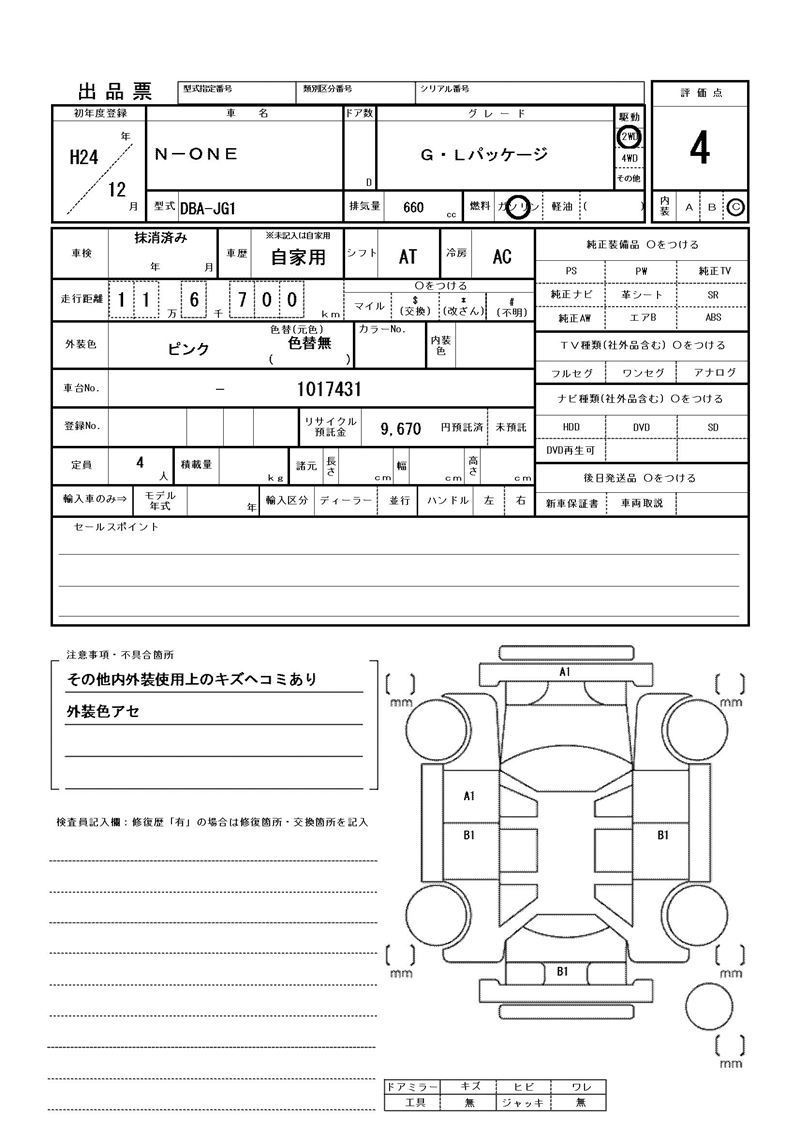 出品票
型式指定番号 類別区分番号 シリアル番号
評価点
4
初年度登録 車 名 ドア数 グ レ ー ド 駆動
H24 年 12 月
N-ONE
D
G・Lパッケージ
2WD
4WD
その他
型式 DBA-JG1 排気量 660 cc 燃料 ガソリン 軽油 ( )
内装 A B C
車検 抹消済み 年 月
車歴 ※未記入は自家用
自家用
シフト AT 冷房 AC
走行距離 11万 6千 700 km
○をつける
マイル $(交換) *(改ざん) #(不明)
外装色 ピンク 色替(元色) 色替無 ( )
カラーNo. 内装色
車台No. - 1017431
登録No. リサイクル預託金 9,670 円預託済 未預託
定員 4 人 積載量 kg 諸元 長さ cm 幅 cm 高さ cm
輸入車のみ⇒ モデル年式 年 輸入区分 ディーラー 並行 ハンドル 左 右
純正装備品 ○をつける
PS PW 純正TV
純正ナビ 革シート SR
純正AW エアB ABS
TV種類(社外品含む) ○をつける
フルセグ ワンセグ アナログ
ナビ種類(社外品含む) ○をつける
HDD DVD SD
DVD再生可
後日発送品 ○をつける
新車保証書 車両取説
セールスポイント
注意事項・不具合箇所
その他内外装使用上のキズヘコミあり
外装色アセ
検査員記入欄：修復歴「有」の場合は修復箇所・交換箇所を記入
A1
[ ] mm
[ ] mm
A1
B1
B1
[ ] mm
[ ] mm
B1
[ ] mm
ドアミラー キズ ヒビ ワレ
工具 無 ジャッキ 無